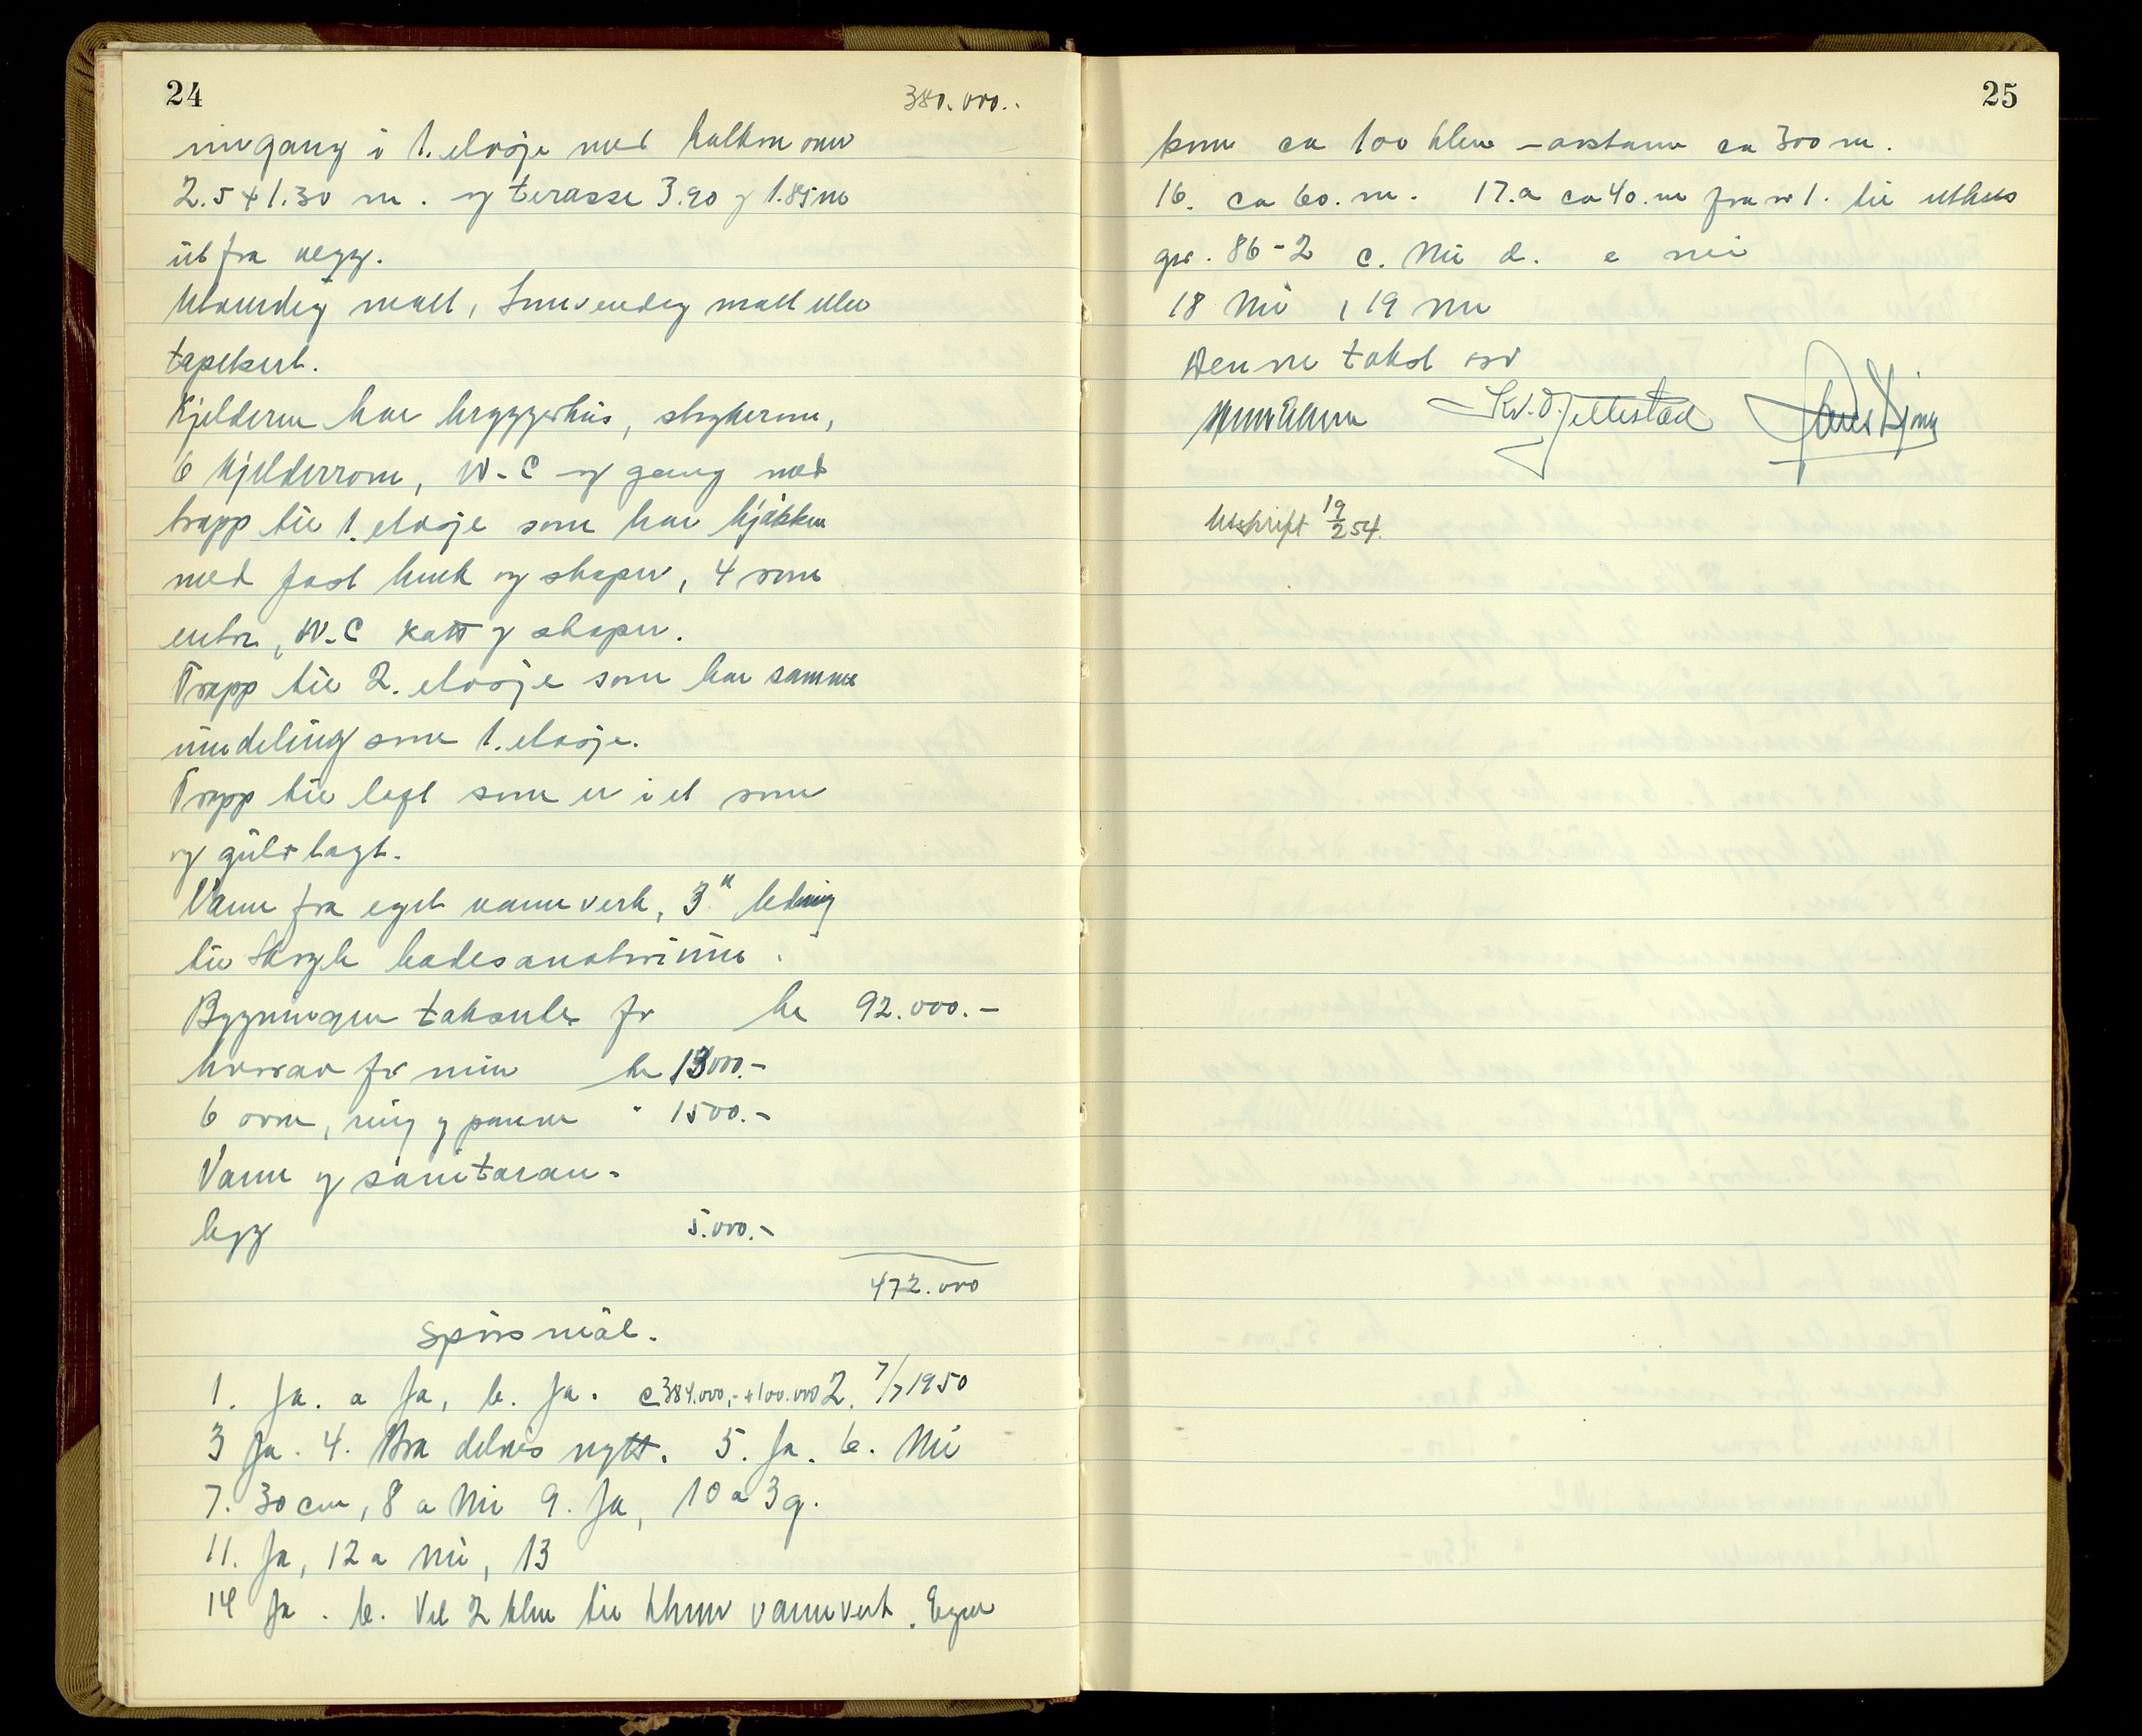 24
380.000.-
inngang i 1. etasje med balkon over
2.5 x 1.30 m. og terasse 3.90 y 1.85 m
ut fra vegg.
Utvendig malt, Innvendig malt eller
tapetsert.
Kjelderen har bryggerhus, strykerom,
6 kjelderrom, W.C og gang med
trapp til 1. etasje som har kjøkken
med fast benk og skaper, 4 rom
entre, W.C kott y skaper.
Trapp til 2. etasje som har samme
inndeling som 1. etasje.
Trapp til loft som er i et rom
og gulvlagt.
Vann fra eget vannverk, 3" ledning
til badesanatorium.
Bygningen takseres for kr 92.000.-
hvorav for mur kr 13000.-
6 ovner, ring y panner " 1500.-
Vann y sanitæran-
legg 5.000.-
472.000
Spørsmål.
1. Ja. a Ja, b. Ja. c 384.000,- + 100.000 2. 7/7 1950
3 Ja. 4. Bra delvis nytt. 5. Ja. 6. Nei
7. 30 cm, 8 a Nei 9. Ja, 10 a 3 g.
11. Ja, 12 a Nei, 13
14 Ja. b. Vel 2 klm til komm vannverk. Egen
25
kum ca 100 klm - avstann ca 300 m.
16. ca 60. m. 17. a ca 40. m fra nr 1. til uthus
gnr. 86-2 c. Nei d. e nei
18 Nei, 19 Nei
Denne takst osv
Kr. O. Jellestad
Utskrift 19/2 54.